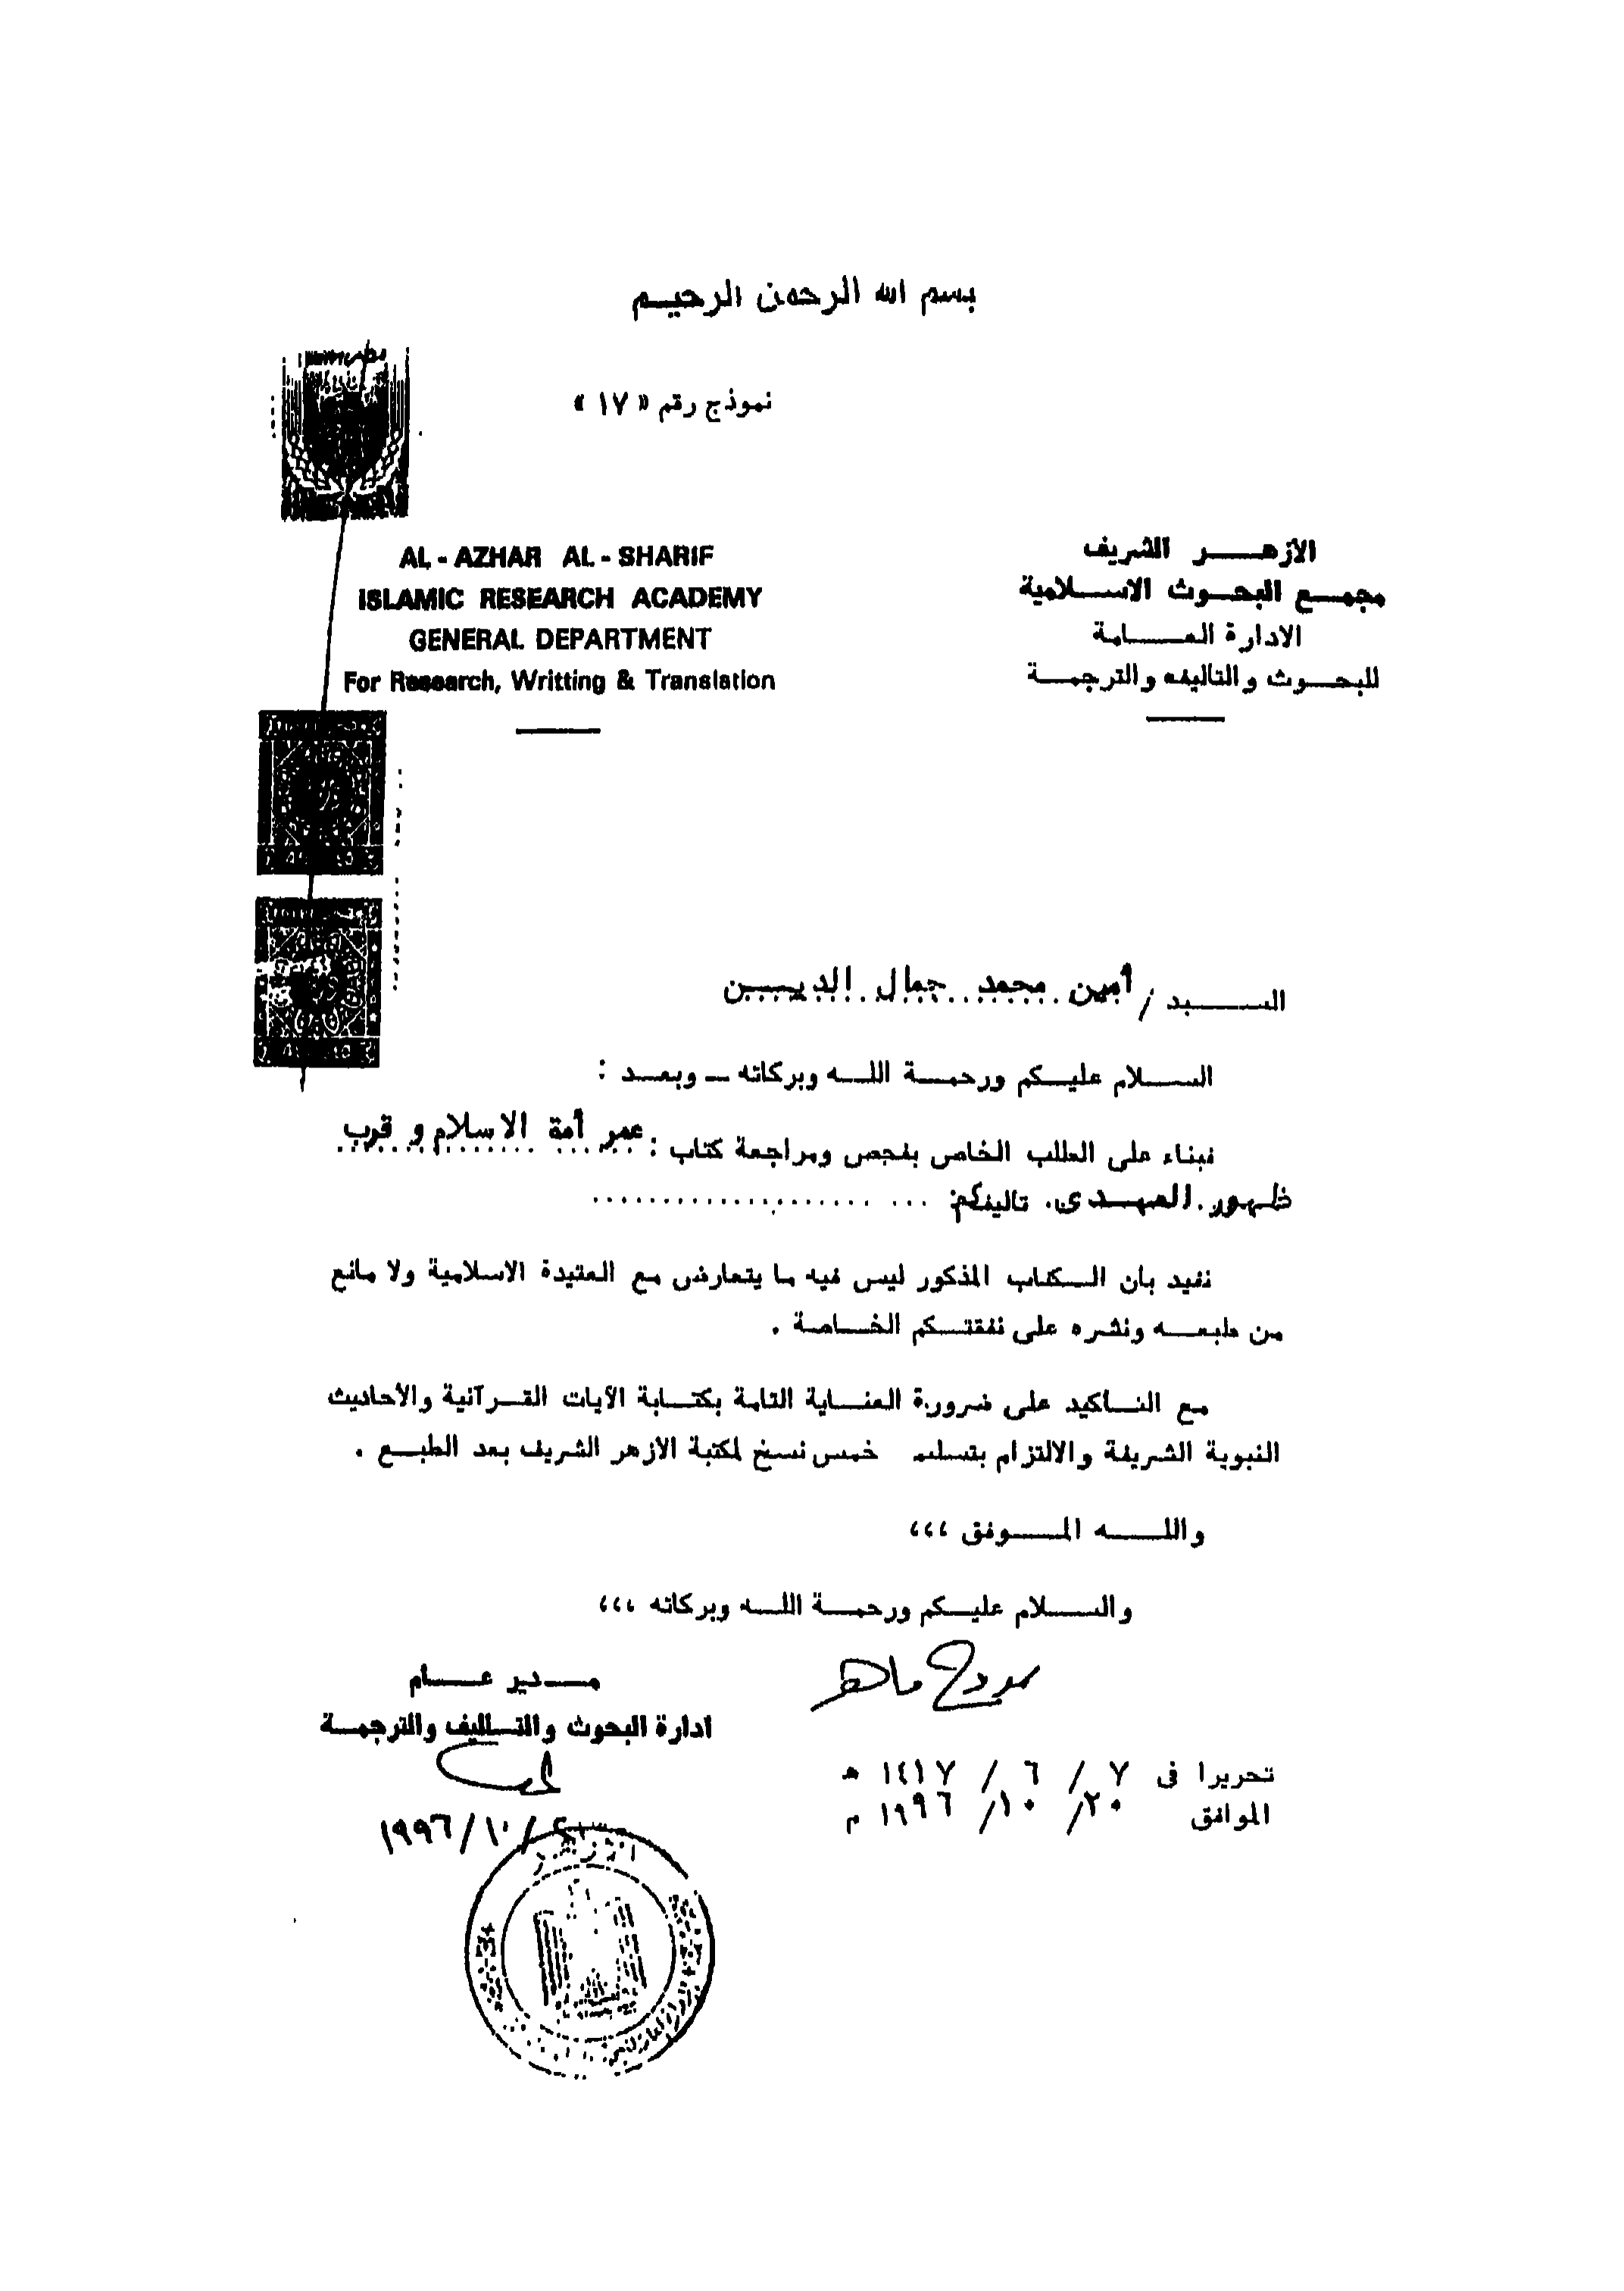 بسم الله الرحمن الرحيم
نموذج رقم « ١٧ »
الازهـــر الشريف
مجمــع البحــوث الاســلامية
الادارة العــــامة
للبحــوث والتاليف والترجمــة
AL - AZHAR AL - SHARIF
ISLAMIC RESEARCH ACADEMY
GENERAL DEPARTMENT
For Research, Writting & Translation
الســــيد / أمين محمد جمال الديــن
الســلام عليــكم ورحمــة اللــه وبركاته ــ وبعــد :
فبناء على الطلب الخاص بفحص ومراجعة كتاب : عمر أمة الاسلام و قرب
ظهور المهــدى تاليفكم:
نفيد بان الــكتاب المذكور ليس فيه ما يتعارض مع العقيدة الاسلامية ولا مانع
من طبعــه ونشره على نفقتــكم الخــاصة .
مع التــاكيد على ضرورة العنــاية التامة بكتــابة الآيات القــرآنية والأحاديث
النبوية الشريفة والالتزام بتسليم خمس نسخ لمكتبة الازهر الشريف بعد الطبــع .
واللــــه المــــوفق ،،،
والســـلام عليــكم ورحمــة اللــه وبركاته ،،،
مــدير عــــام
ادارة البحوث والتــاليف والترجمــة
تحريرا فى ٧ / ٦ / ١٤١٧ هـ
الموافق ٢٠ / ١٠ / ١٩٩٦ م
١٩٩٦/١٠/
الأزهر